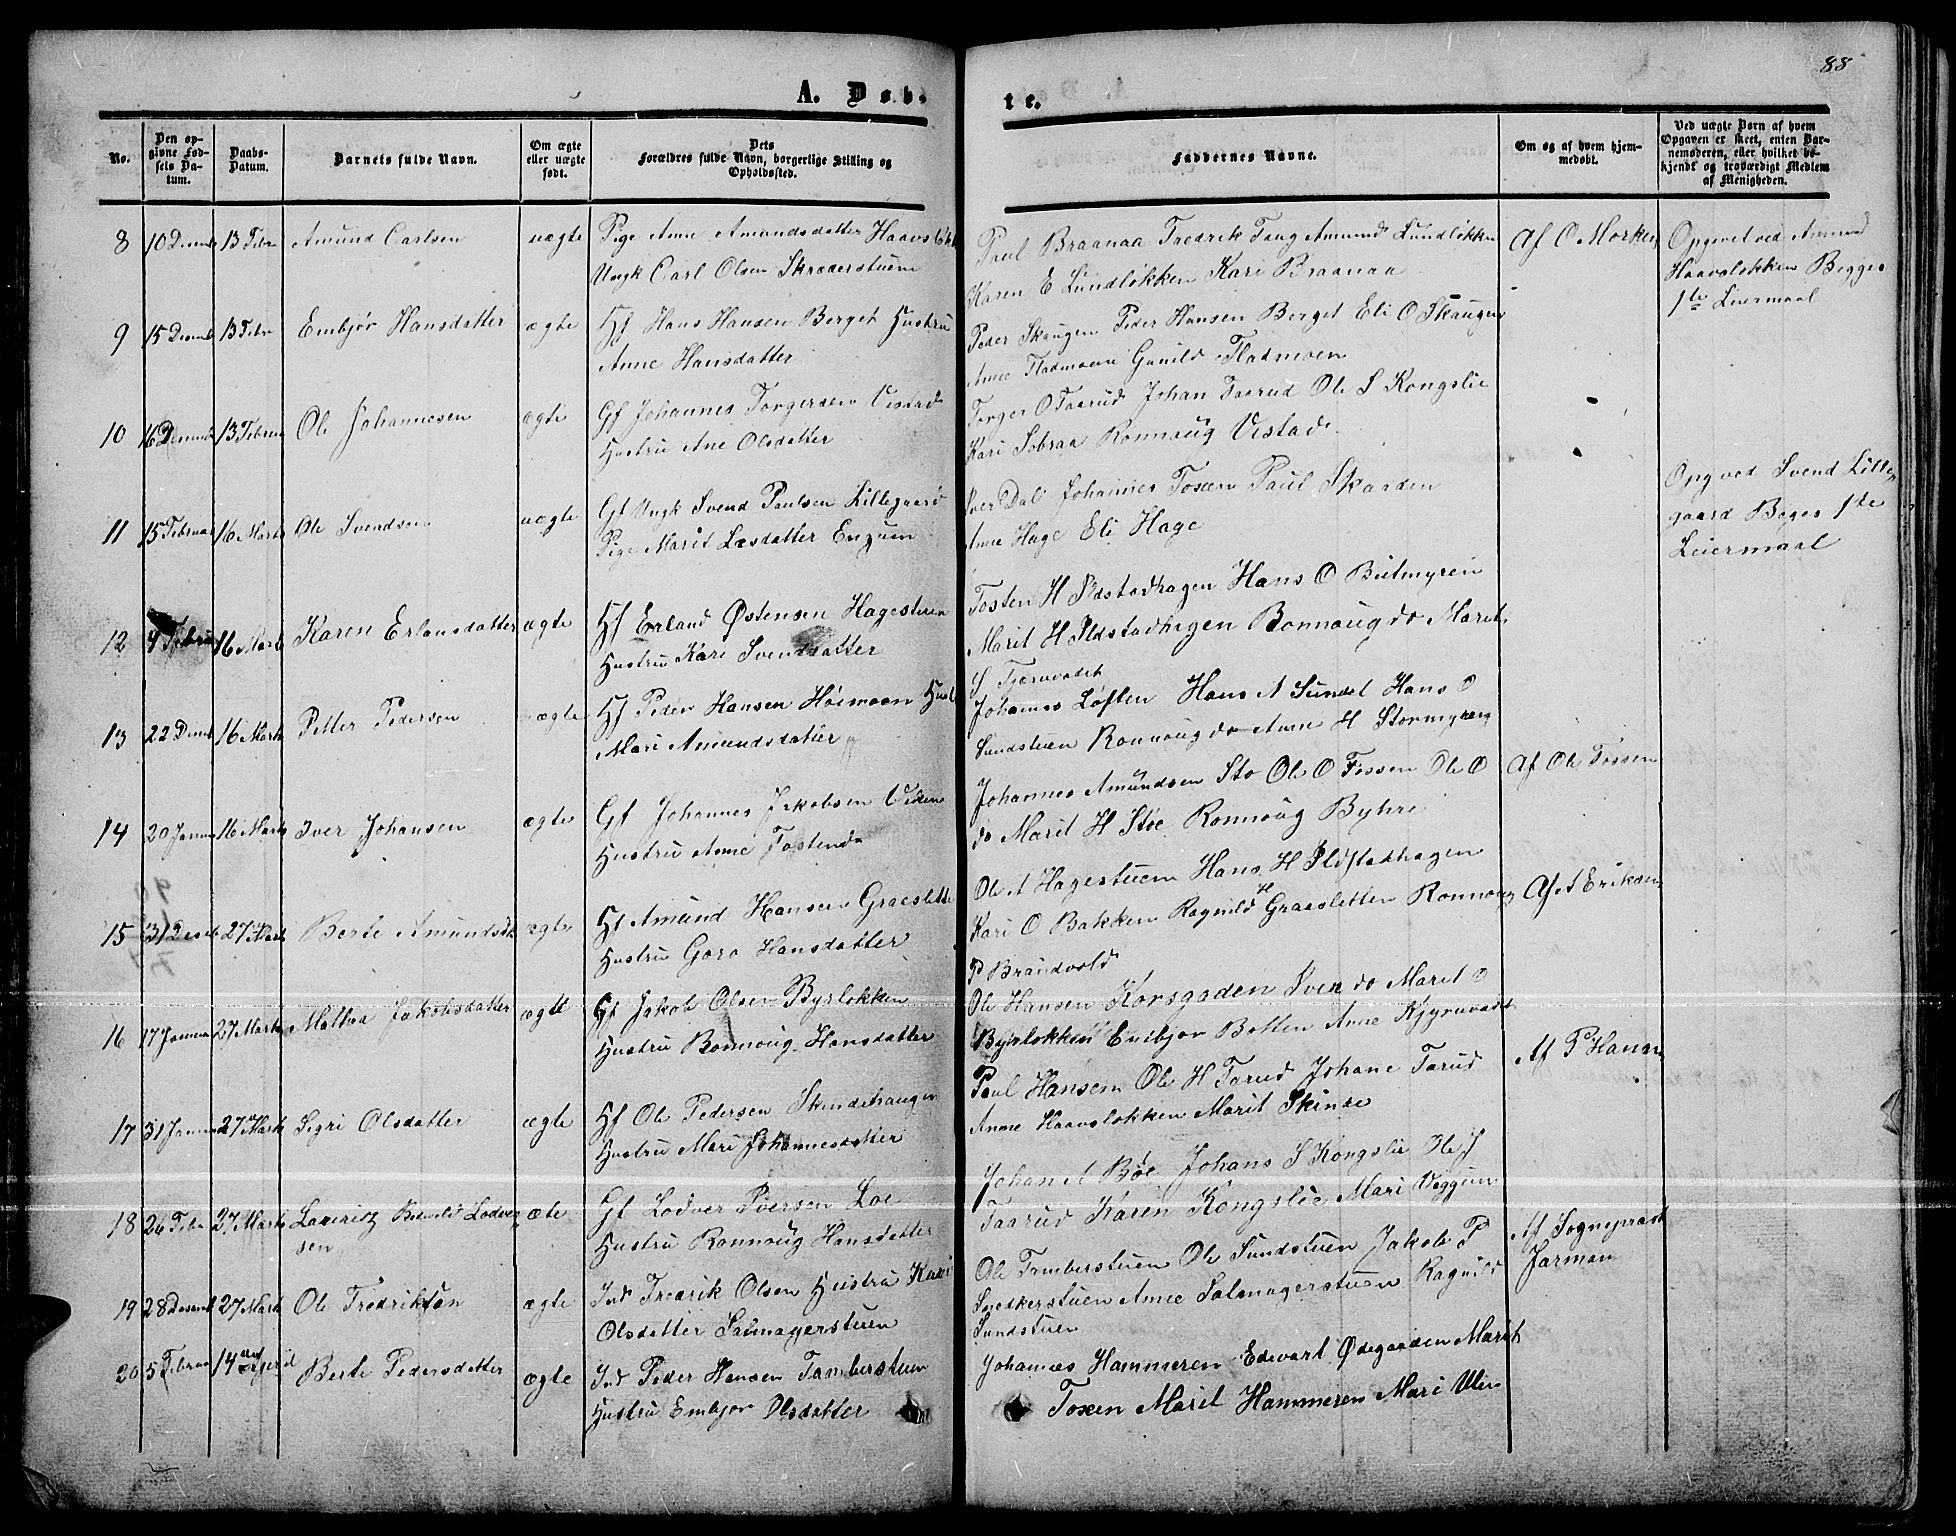 88
A. Døb- te.
No.
Den op-
givne Fød-
sels Da-
tum.
Daabs-
Datum.
Barnets fulde Navn.
Om ægte
eller uægte
født.
Dets
Forældres fulde Navn, borgerlige Stilling og
Opholdssted.
Faddernes Navne.
Om og af hvem hjem-
medøbt.
Ved uægte Børn af hvem
Opgaven er skeet, enten Bar-
nemoderen, eller hvilket be-
kjendt og troværdigt Medlem
af Menigheden.
8 10 Decemb 13 Febru Amund Carlsen uægte Pige Anne Amundsdatter Haavsløkk
Ungk Carl Olsen Skræderstuen
Paul Braanaa Fredrik Toug Amund Lundløkken
Karen E Lundløkken Kari Braanaa
Af O Morken
Opgivet ved Amund
Haavsløkken Begges
1te Leiermaal
9 15 Decemb 13 Febru Embjør Hansdatter ægte Hf Hans Hansen Berget Hustru
Anne Hansdatter
Peder Skaugen Peder Hansen Berget Eli O Skaugen
Anne Fladmoen Gunild Fladmoen
10 16 Decemb 13 Februa Ole Johannesen ægte Gf Johannes Torgersen Vistad
Hustru Ane Olsdatter
Torger O Taarud Johan Taarud Ole S Kongslie
Kari Sobraa Ronnaug Vistad
11 15 Februar 16 Marts Ole Svendsen uægte Gt Ungk Svend Paulsen Lillegaard
Pige Marit Læsdatter Enzuen
Iver Dal Johannes Tosen Paul Skaaden
Anne Hage Eli Hage
Opg ved Svend Lille-
gaard Beges 1te
Leiermaal
12 4 Febru 16 Marts Karen Erlansdatter ægte Hf Erland Østensen Hagesteen
Hustru Kari Svendsdatter
Tosten H Ildstadhagen Hans O Bietmyren
Marit H Ildstadhagen Ronnaug do Marit
S Tjernvadet
13 22 Decmb 16 Marts Petter Pedersen ægte Hf Peder Hansen Høimoen Hust
Mari Amundsdatter
Johannes Løften Hans A Sundet Hans O
Sundstuen Ronnoug do Anne H Stormyren
14 20 Januar 16 Marts Iver Johansen ægte Gf Johannes Jakobsen Viken
Hustru Anne Tostensd
Johannes Amundsen Sto Ole O Fossen Ole O
do Marit H Stoe Ronnoug Byhre
Af Ole Fossen
15 31 Decb 27 Marts Berte Amundsdt ægte Hf Amund Hansen Graesletten
Hustru Goro Hansdatter
Ole A Hagestuen Hans H Ildstadhagen
Kari O Bakken Ragnild H Graasletten Ronnoug
P Brandvold
Af A Eriksen
16 17 Januar 27 Marts Mathea Jakobsdatter ægte Gf Jakob Olsen Byrløkken
Hustru Ronnoug Hansdatter
Ole Hansen Korsgoden Sven do Marit O
Byrløkken Embjør Botten Anne Kjyruvadet
17 31 Januar 27 Marts Sigri Olsdatter ægte Hf Ole Pedersen Skindehaugen
Hustru Mari Johannesdatter
Paul Hansen Ole H Tarud Johane Tarud
Anne Haavsløkken Marit Skinde
Af P Hansen
18 26 Febr 27 Marts Lauritz Lodver
sen
æte Gf Lodver Iversen Loe
Hustru Ronnoug Hansdatter
Johan A Bøe Johans S Kongslie Ole J
Taarud Karen Kongslie Mari Veggum
19 28 Decemb 27 Marts Ole Fredriksen ægte Ind Fredrik Olsen Hustru Kari
Olsdatter Salmagerstuen
Ole Tamberstuen Ole Sundstuen Jakob P
Snedkerstuen Anne Salmagerstuen Ragnild
Sundstuen
Af Sognepræst
Jarman
20 5 Februar 14 April Berte Pedersdatter ægte Ind Peder Hansen Tamberstuen
Hustru Embjør Olsdatter
Johannes Hammeren Edevart Ødegaarden Marit
Tosen Marit Hammeren Mari Ulen